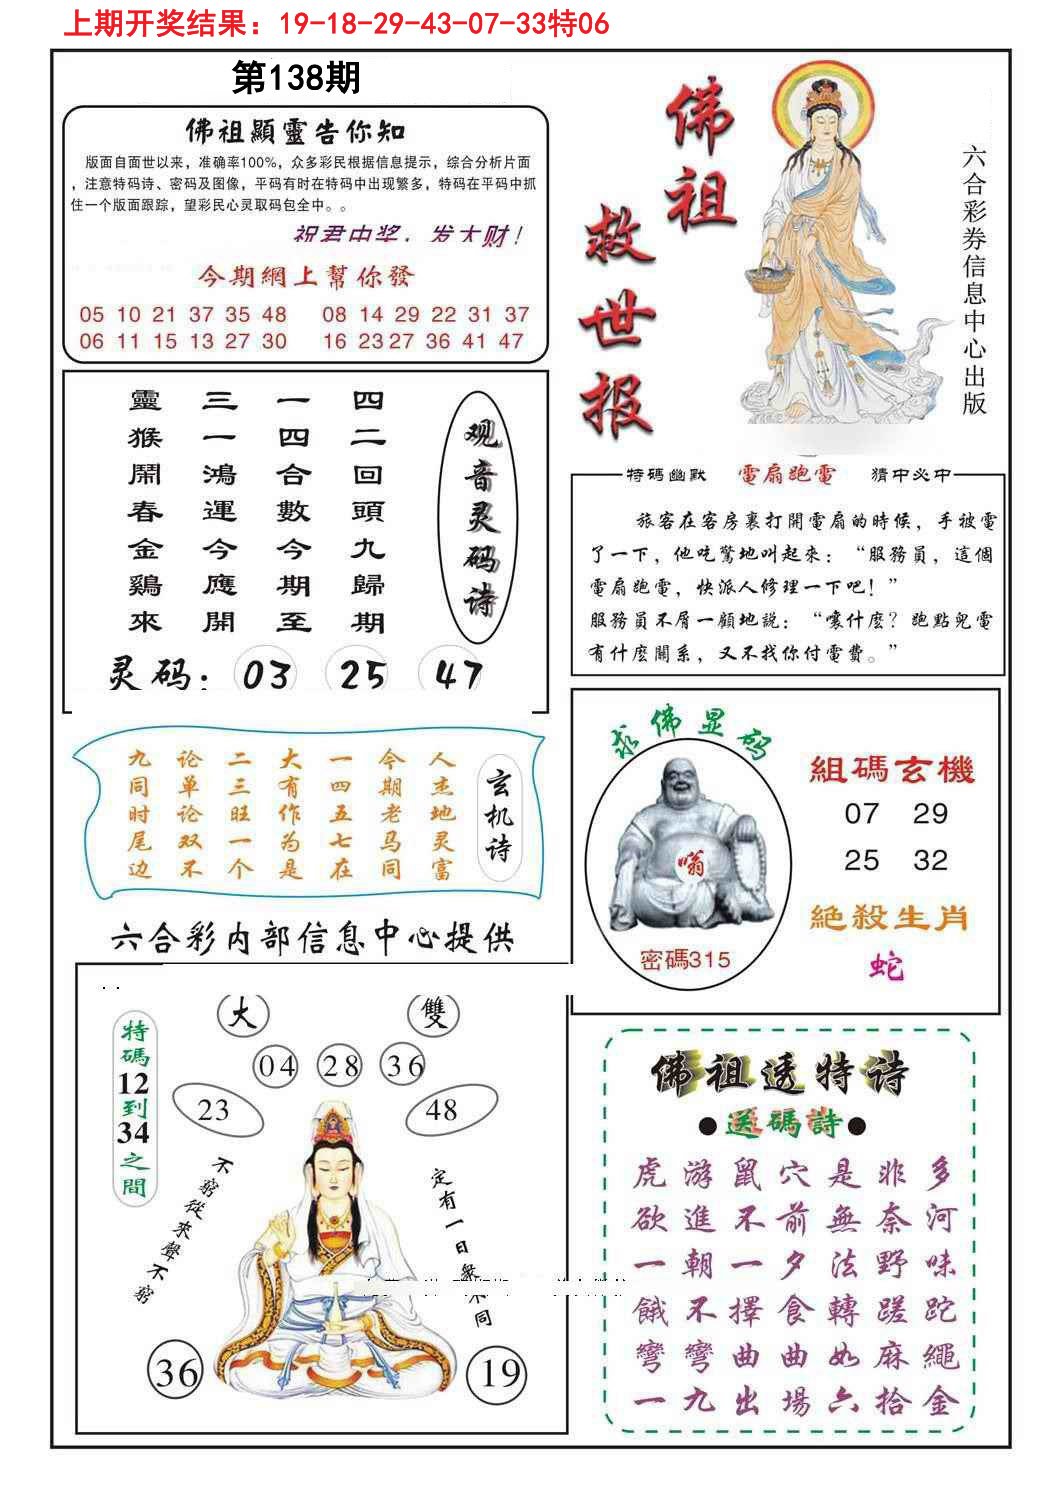 上期开奖结果：19-18-29-43-07-33特06
第138期
佛祖顯靈告你知
版面自面世以来，准确率100%，众多彩民根据信息提示，综合分析片面
，注意特码诗、密码及图像，平码有时在特码中出现繁多，特码在平码中抓
住一个版面跟踪，望彩民心灵取码包全中。。
祝君中奖，发大财！
今期網上幫你發
05 10 21 37 35 48 08 14 29 22 31 37
06 11 15 13 27 30 16 23 27 36 41 47
佛祖
救世报
六合彩券信息中心出版
四二回頭九歸期
一四合數今期至
三一鴻運今應開
靈猴鬧春金鷄來
观音灵码诗
灵码：03 25 47
特碼幽默 電扇跑電 猜中必中
旅客在客房裏打開電扇的時候，手被電
了一下，他吃驚地叫起來：“服務員，這個
電扇跑電，快派人修理一下吧！”
服務員不屑一顧地説：“嚷什麽？跑點兒電
有什麽關系，又不找你付電費。”
玄机诗
人杰地灵富
今期老马同
一四五七在
大有作为是
二三旺一个
论单论双不
九同时尾边
求佛显码
嗡
密碼315
組碼玄機
07 29
25 32
絕殺生肖
蛇
六合彩内部信息中心提供
特碼12到34之間
大 雙
04 28 36
23 48
不窮從來聲不窮
定有一日衆不同
36 19
佛祖透特诗
●送碼詩●
虎游鼠穴是非多
欲進不前無奈河
一朝一夕法野味
餓不擇食轉蹉跎
彎彎曲曲如麻繩
一九出場六拾金